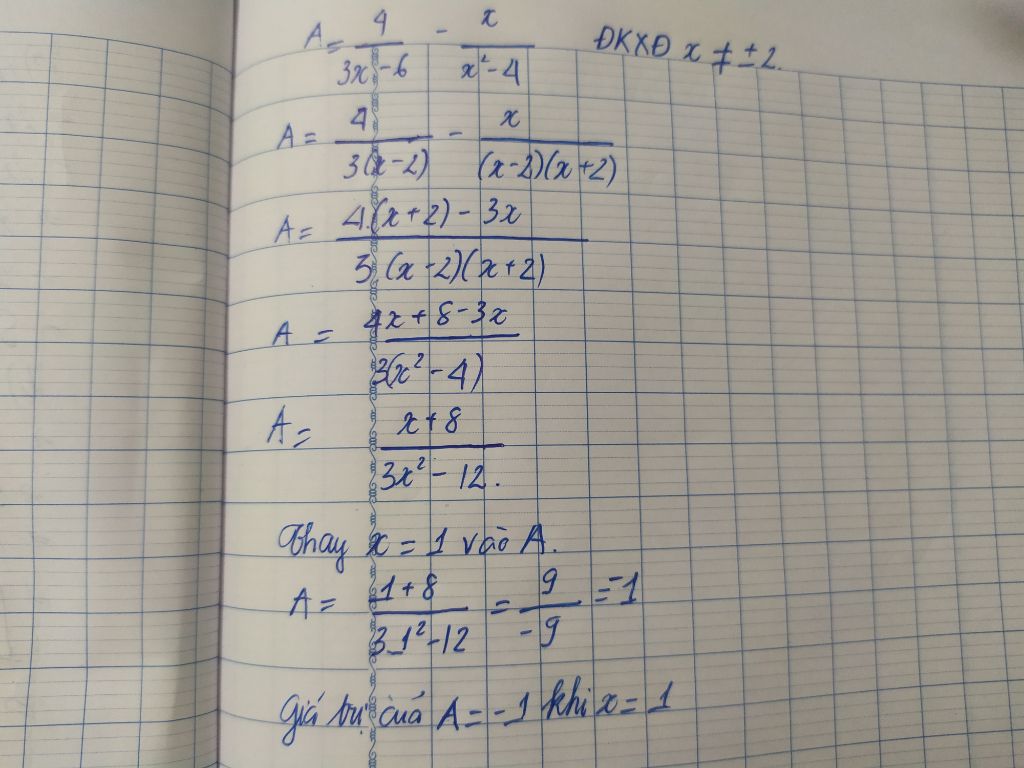 A = 4/(3x-6) - x/(x²-4) ĐKXĐ x ≠ ±2.
A = 4/(3(x-2)) - x/((x-2)(x+2))
A = (4.(x+2) - 3x)/(3(x-2)(x+2))
A = (4x+8-3x)/(3(x²-4))
A = (x+8)/(3x²-12).
Thay x = 1 vào A.
A = (1+8)/(3.1²-12) = 9/(-9) = -1
Giá trị của A = -1 khi x = 1